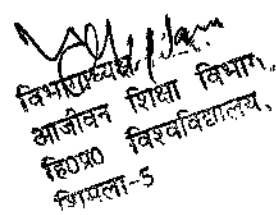 विभागाध्यक्ष
आजीवन शिक्षा विभाग,
हि0प्र0 विश्वविद्यालय,
शिमला-5